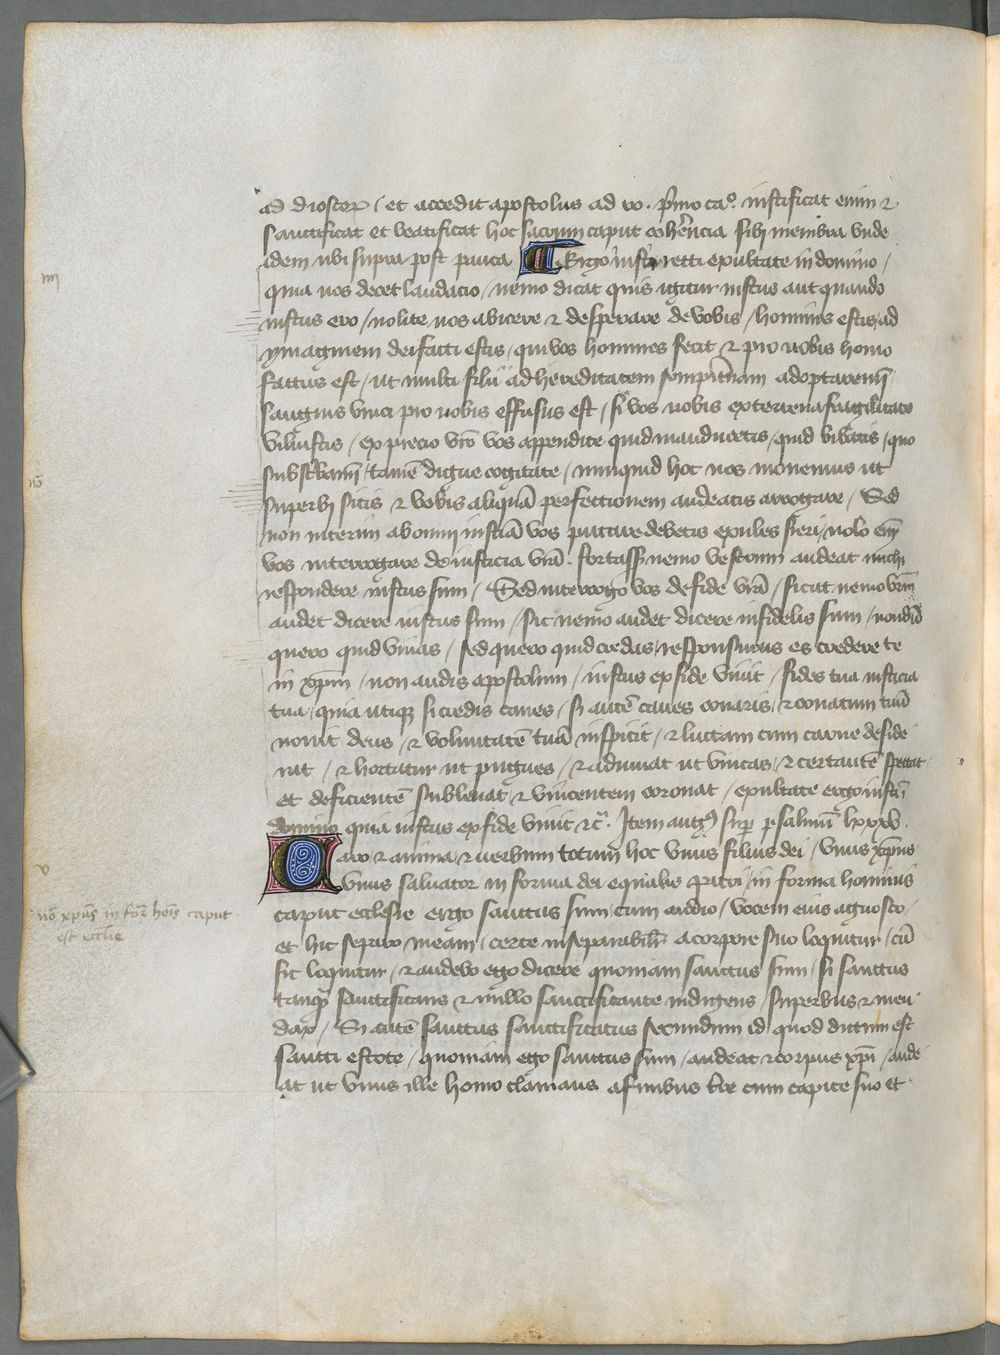 ad dioscorꝫ / et accedit apostolus ad ro. pͥmo ca.º iustificat enim ⁊
sanctificat et beatificat hoc sacrum caput coherēcia sibi membra vnde
idem vbi supra post pauca Ergo iusti recti exultate in domino /
quia vos decet laudacio / nemo dicat quis igitur iustus aut quando
iustus ero / nolite vos abicere ⁊ desperare de vobis / homines estis ad
ymaginem dei facti estis / qui vos homines fecit ⁊ pro vobis homo
factus est / ut multi filii ad hereditatem sempiternam adoptaremī
sanguis vnici pro vobis effusus est / si vos vobis ex terrena fragilitate
viluistis / ex precio vr̄o vos appendite quid manducetis / quid bibatis / quo
subscribamī / tamē digne cogitate / numquid hoc vos monemus ut
superbi sitis ⁊ vobis aliquā perfectionem audeatis arrogare / Sed
non iterum ab omni iusticiā vos putare debetis exules fieri / nolo em̄
vos interrogare de iusticia vr̄a . fortassis nemo vestrum audeat michi
respondere iustus sum / Sed interrogo vos de fide vr̄a / sicut nemo vr̄m
audet dicere iustus sum / sic nemo audet dicere infidelis sum / nondū
quero quid viuas / sed quero quid credas / responsurus es credere te
in xp̄m / non audis apostolum / iustus ex fide viuit / fides tua iusticia
tua / quia utiqꝫ si credis caues / si autē caues conaris / ⁊ conatum tuū
nouit deus / ⁊ voluntatē tuā inspicit / ⁊ luctam cum carne deside
rat / ⁊ hortatur ut pugnes / ⁊ adiuuat ut vincas / ⁊ certantē spectat
et deficientē subleuat / ⁊ vincentem coronat / exultate ergo iusti
domino quia iustus ex fide viuit ⁊c̃. Item augꝰ sup̄ psalmū lxxxv.
Caro ⁊ anima ⁊ verbum totum hoc vnus filius dei / vnus xp̄us
vnus saluator in forma dei equalis pat̄i / in forma hominis
caput ecclesie ergo sanctus sum / cum audio / vocem eius agnosco /
et hic separo meam / certe inseparabilit̄ a corpore suo loquitur / cū
sic loquitur / ⁊ audebo ego dicere quoniam sanctus sum / si sanctus
tanqͣ sanctificans ⁊ nullo sanctificante indigens / superbus ⁊ men
dax / Si autē sanctus sanctificatus secundum id quod dictum est
sancti estote / quoniam ego sanctus sum / audeat ⁊ corpus xp̄i / aude
at ut vnus ille homo clamans a finibus tr̄e cum capite suo et
nō xpūs in for̄ hoīs caput
est eccl̄ie